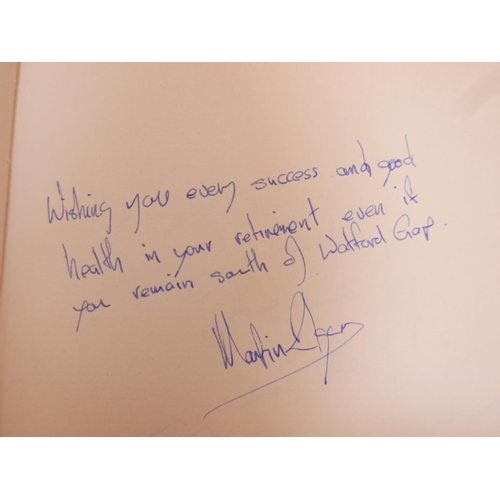 Wishing you every success and good
health in your retirement even if
you remain south of Watford Gap.
Martin